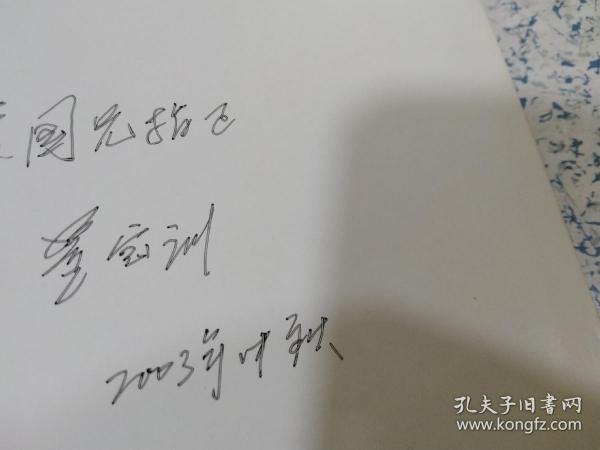 国兄指正
宝训
2003年中秋
孔夫子旧书网
www.kongfz.com